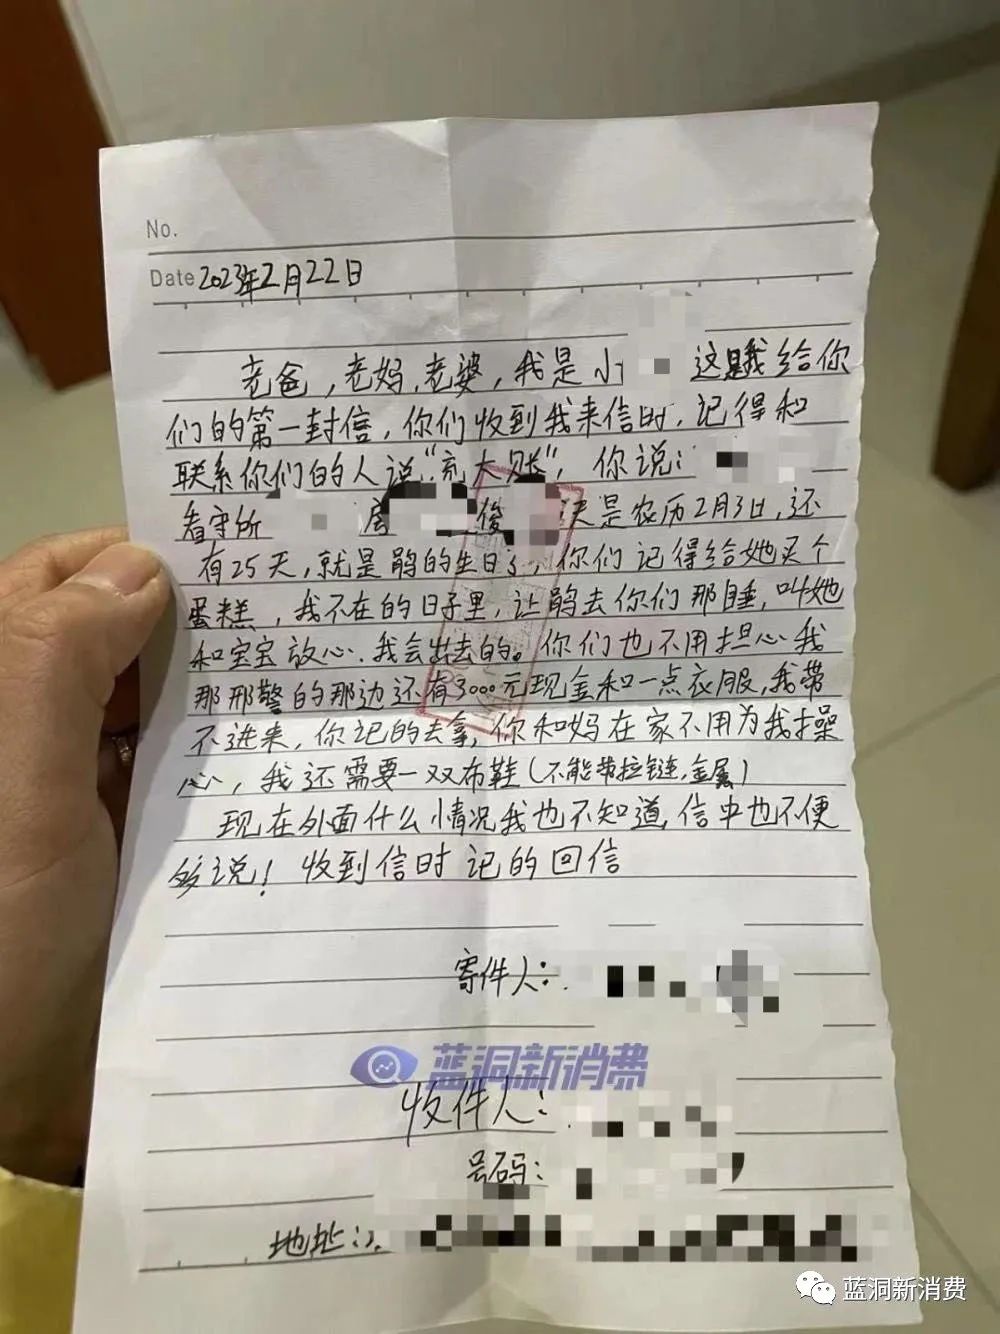 No.
Date 2023年2月22日
老爸，老妈，老婆，我是小 这是我给你
们的第一封信，你们收到我来信时，记得和
联系你们的人说，“充大账”，你说：
看守所 房 俊 天是农历2月3日，还
有25天，就是鹃的生日了，你们记得给她买个
蛋糕，我不在的日子里，让鹃去你们那睡，叫她
和宝宝放心，我会出去的。你们也不用担心我
那邢警的那边还有3000元现金和一点衣服，我带
不进来，你记的去拿，你和妈在家不用为我操
心，我还需要一双布鞋（不能带拉链，金属）
现在外面什么情况我也不知道，信中也不便
够说！收到信时记的回信
寄件人：
蓝洞新消费
收件人：
号码：
地址：
蓝洞新消费